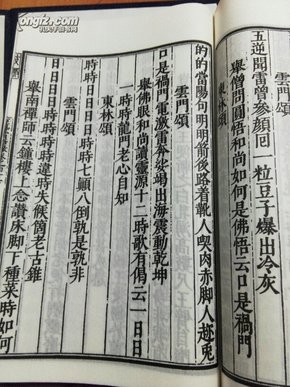 五逆聞雷曾參顏回一粒豆子爆出冷灰
舉僧問圓悟和尚如何是佛悟云口是禍門
東林頌
雲門頌
的的當陽句明明箭後路着靴人喫肉赤脚人趂兎
口是禍門電激雷奔娑竭出海震動乾坤
舉佛眼和尚讀靈源十二時歌有偈云一日日
一時時龍門老心自知
東林頌
時時日日日日時時七顛八倒孰是孰非
雲門頌
日日日日時時時時違時失候箇老古錐
舉南禪師云鐘樓上念讚床脚下種菜時如何